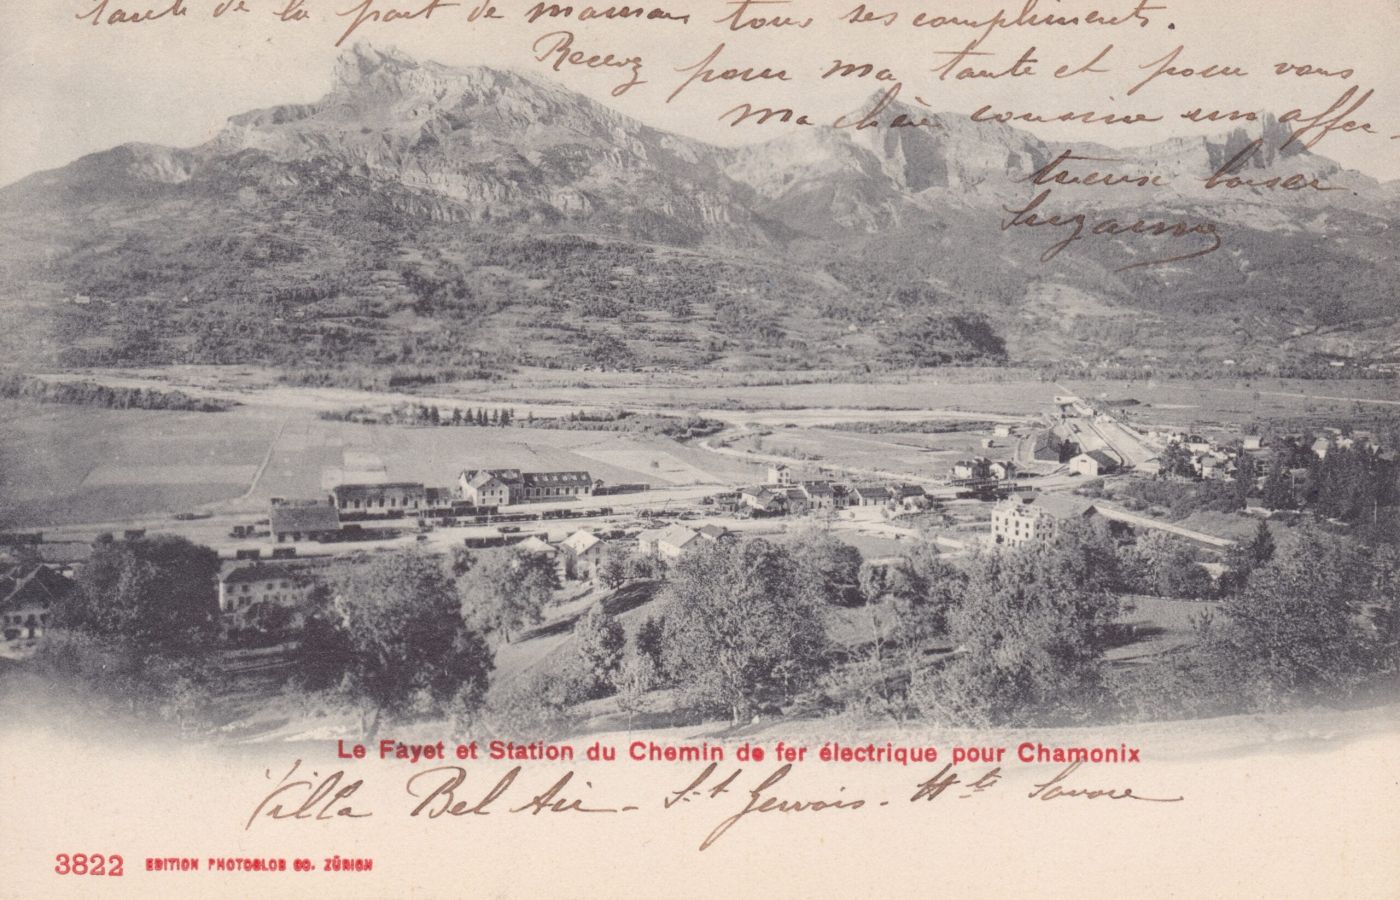 tante de la part de maman tous ses compliments.
Recevez pour ma tante et pour vous
ma chère cousine un affec
tueux baiser.
Suzanne
Le Fayet et Station du Chemin de fer électrique pour Chamonix
Villa Bel Air - St Gervais - Hte Savoie
3822 EDITION PHOTOGLOB CO. ZÜRICH